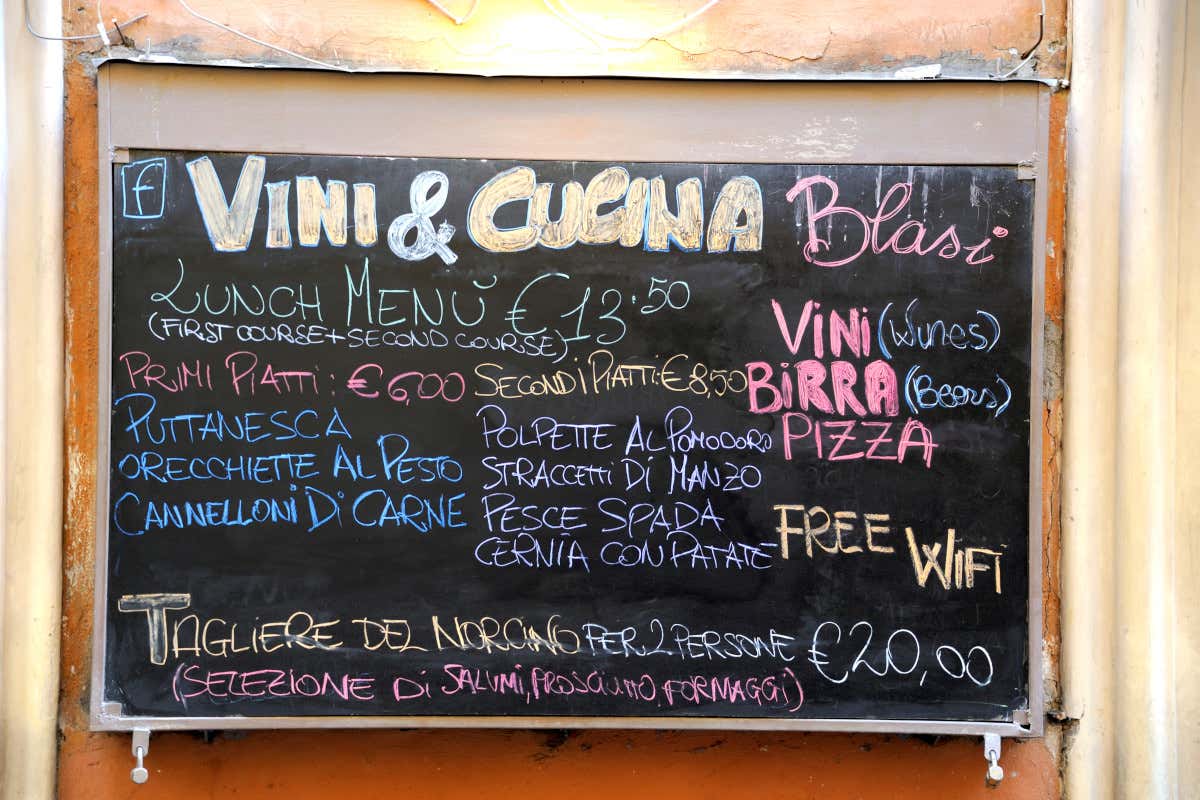 f VINI & CUCINA Blasi
LUNCH MENÙ €13.50
(FIRST COURSE+SECOND COURSE)
PRIMI PIATTI: €6,00
PUTTANESCA
ORECCHIETTE AL PESTO
CANNELLONI DI CARNE
SECONDI PIATTI: €8,50
POLPETTE AL POMODORO
STRACCETTI DI MANZO
PESCE SPADA
CERNIA CON PATATE
VINI (Wines)
BIRRA (Beers)
PIZZA
FREE WIFI
TAGLIERE DEL NORCINO PER 2 PERSONE €20,00
(SELEZIONE DI SALUMI, PROSCIUTTO, FORMAGGI)